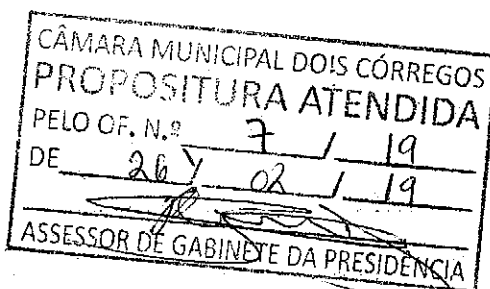 CÂMARA MUNICIPAL DOIS CÓRREGOS
PROPOSITURA ATENDIDA
PELO OF. N.º 7 / 19
DE 26 / 02 / 19
ASSESSOR DE GABINETE DA PRESIDÊNCIA